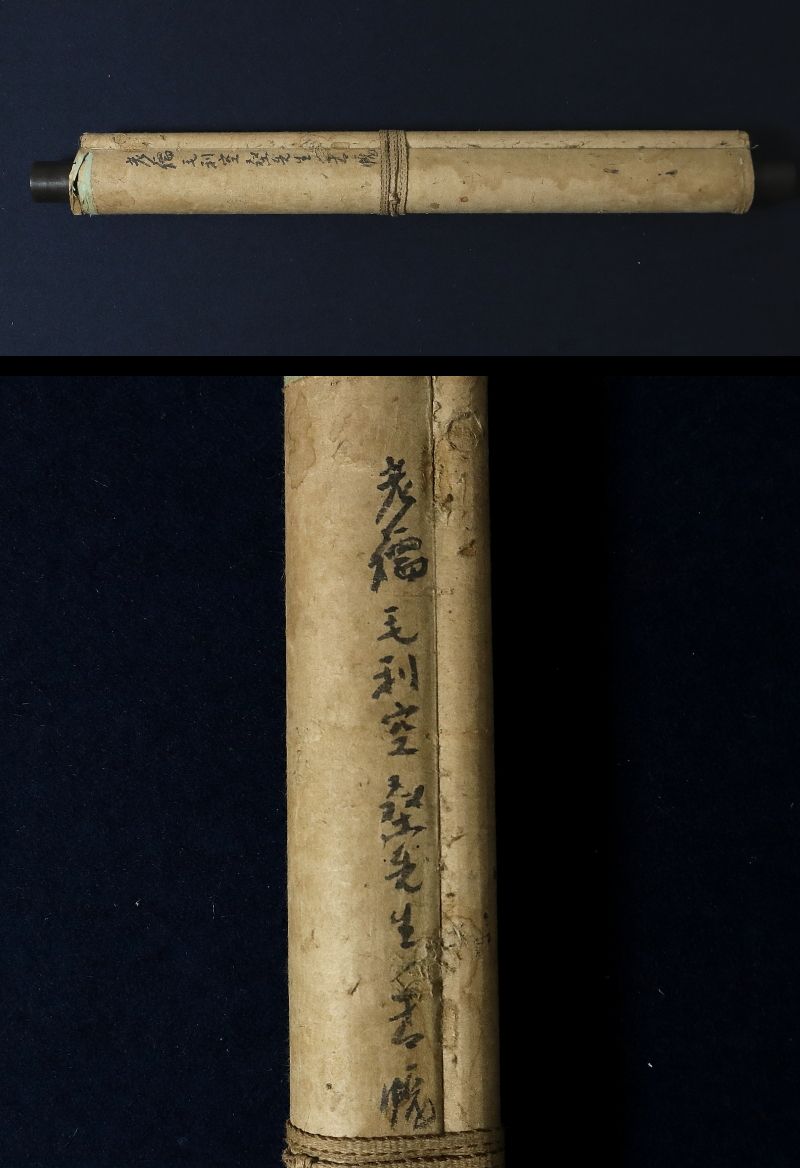 老儒毛利空桑先生書幅
老儒毛利空桑先生書幅